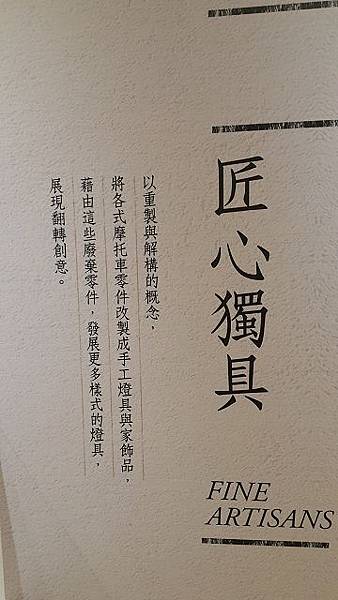 匠心獨具
FINE
ARTISANS
以重製與解構的概念，
將各式摩托車零件改製成手工燈具與家飾品，
藉由這些廢棄零件，發展更多樣式的燈具，
展現翻轉創意。